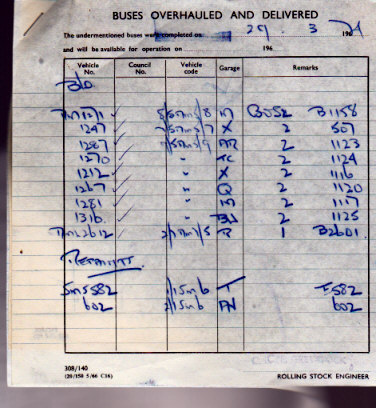 BUSES OVERHAULED AND DELIVERED
The undermentioned buses were completed on 29 . 3 . 1971
and will be available for operation on 196
Vehicle No. Council No. Vehicle code Garage Remarks
B/o
RM1271 8 M BO52 B1158
1247 7 X 2 507
1287 9 AR 2 1123
1270 " TC 2 1124
1212 " X 2 1116
1267 " Q 2 1120
1281 " M 2 1117
1316 " BW 2 1125
RML2612 5 R 1 B2601
Repaints
SMS582 1/1Sm6 T F582
602 2/1Sm6 AV 602
308/140
(20/158 5/66 C16)
ROLLING STOCK ENGINEER